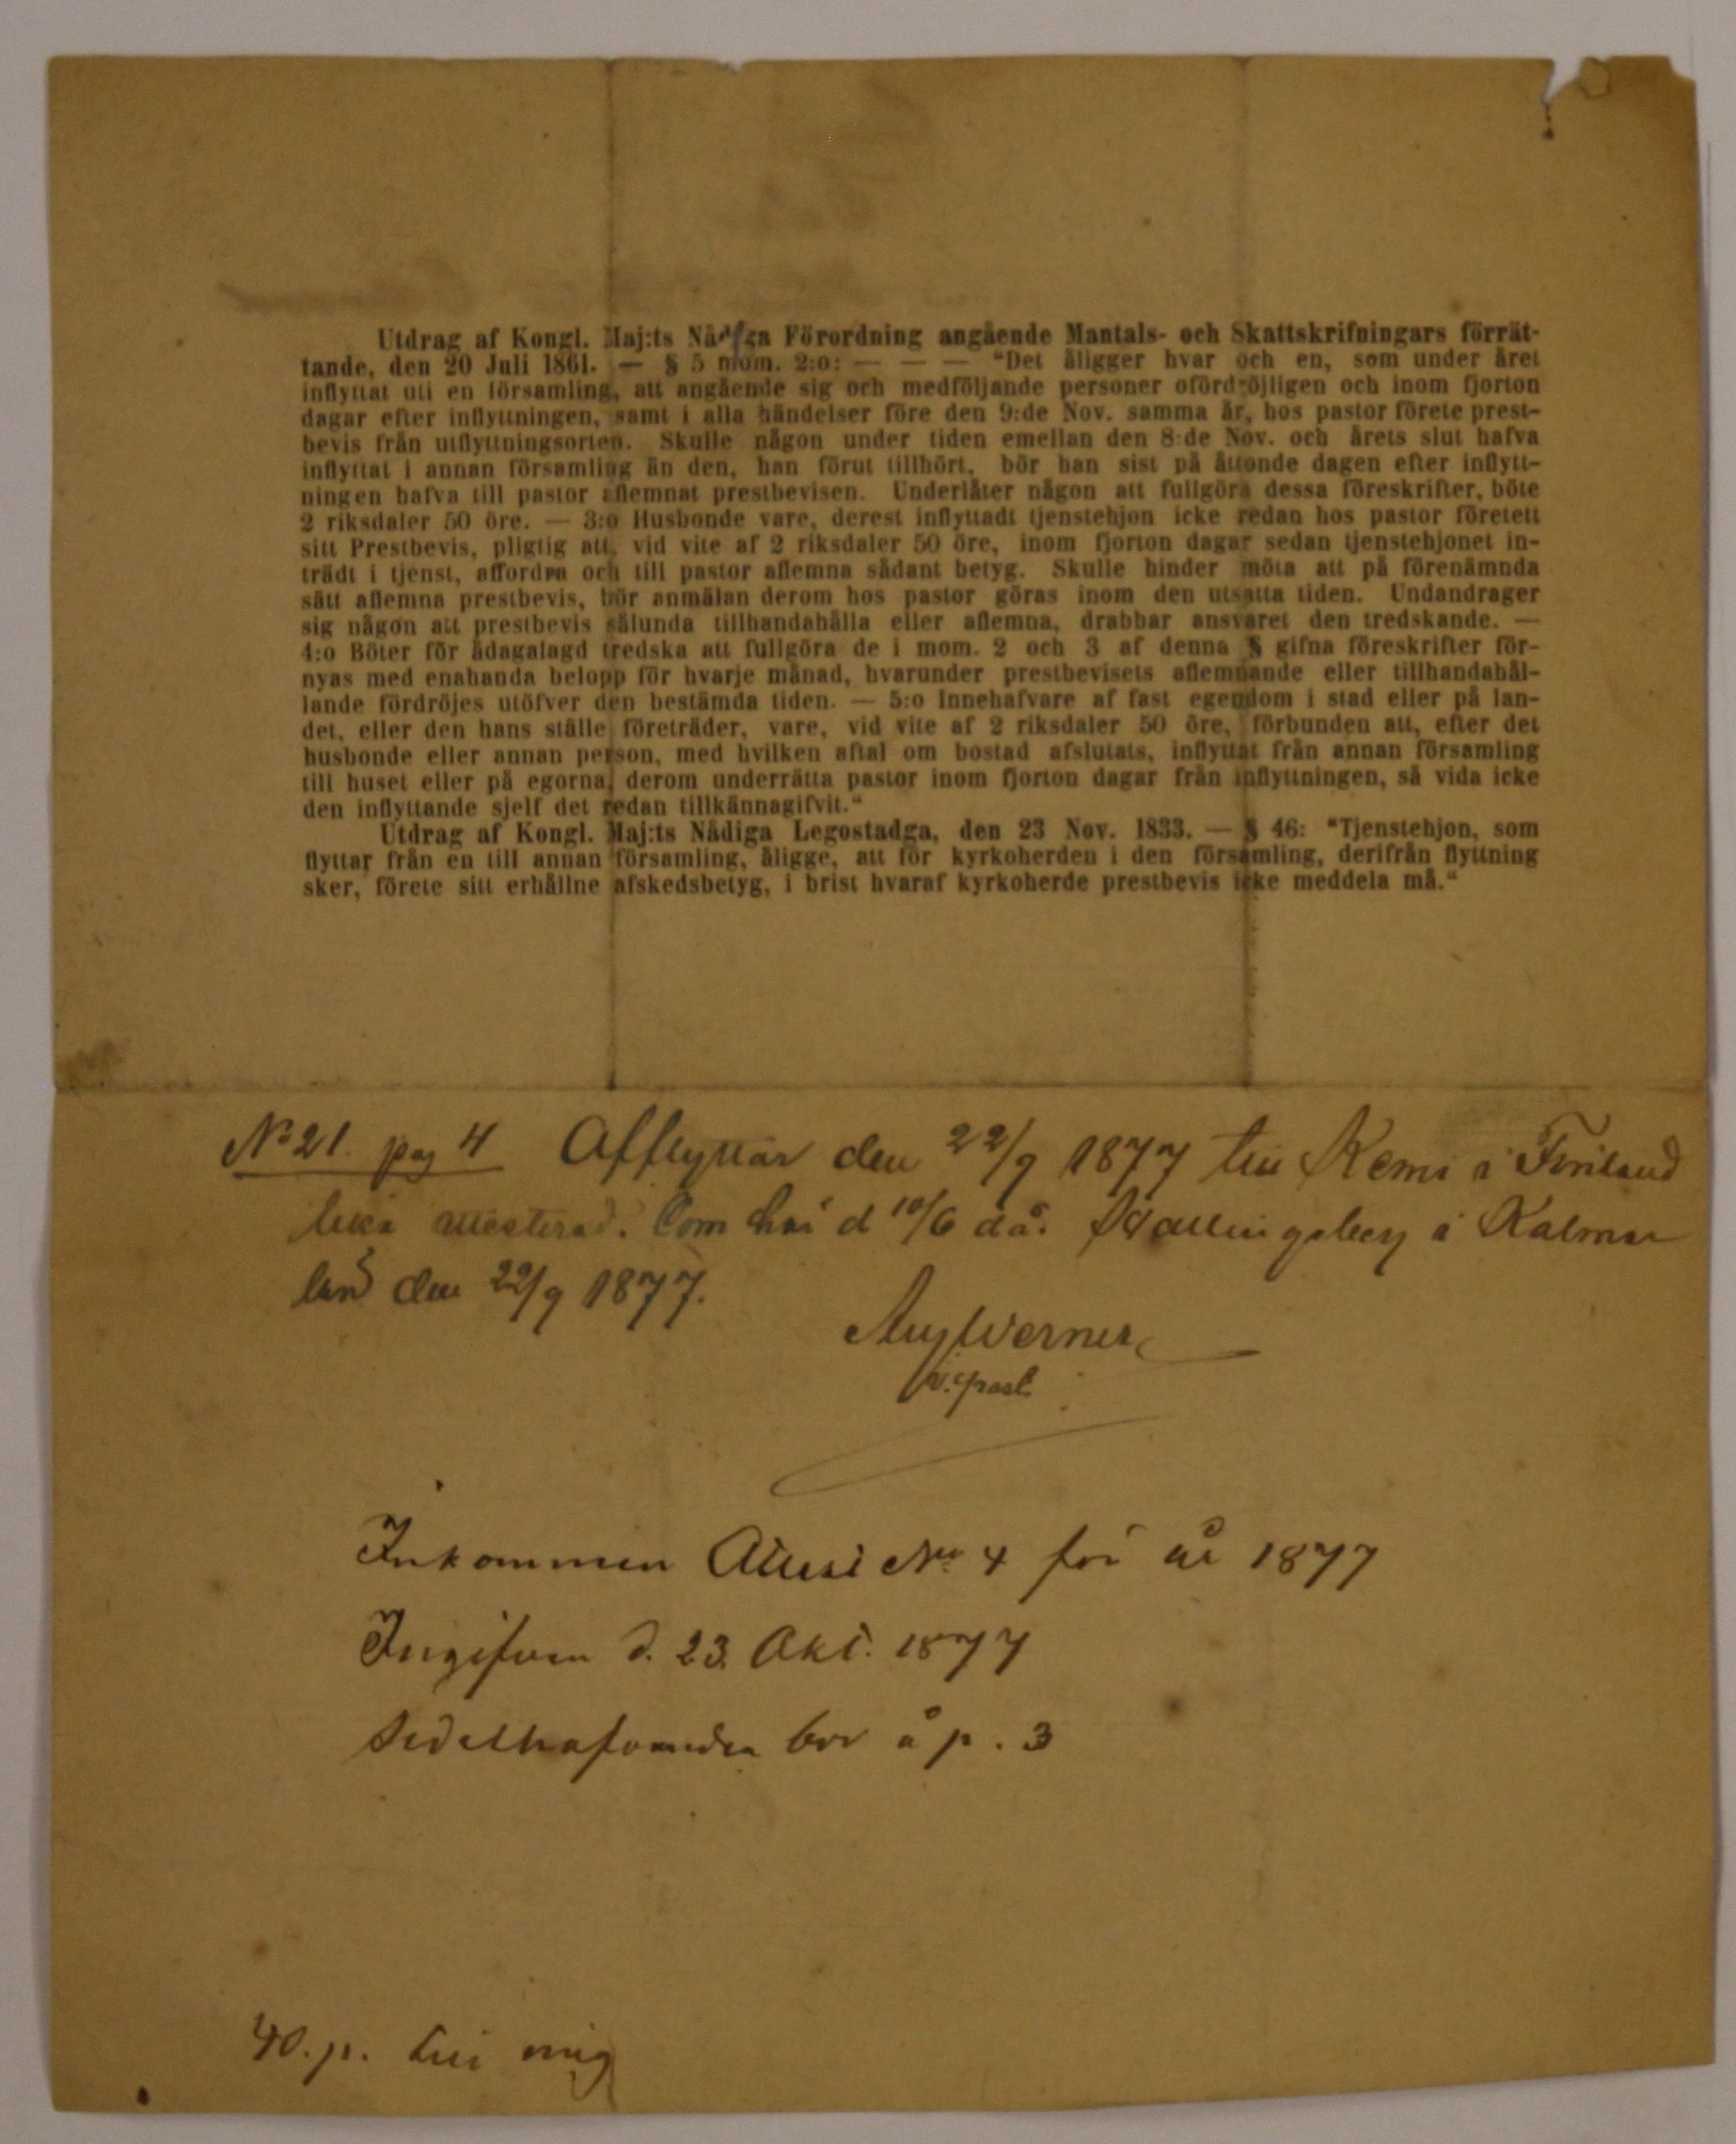 Utdrag af Kongl. Maj:ts Nådiga Förordning angående Mantals- och Skattskrifningars förrät-
tande, den 20 Juli 1861. — § 5 mom. 2:o: — — — “Det åligger hvar och en, som under året
inflyttat uti en församling, att angående sig och medföljande personer ofördröjligen och inom fjorton
dagar efter inflyttningen, samt i alla händelser före den 9:de Nov. samma år, hos pastor förete prest-
bevis från utflyttningsorten. Skulle någon under tiden emellan den 8:de Nov. och årets slut hafva
inflyttat i annan församling än den, han förut tillhört, bör han sist på åttonde dagen efter inflytt-
ningen hafva till pastor aflemnat prestbevisen. Underlåter någon att fullgöra dessa föreskrifter, böte
2 riksdaler 50 öre. — 3:o Husbonde vare, derest inflyttadt tjenstehjon icke redan hos pastor företett
sitt Prestbevis, pligtig att, vid vite af 2 riksdaler 50 öre, inom fjorton dagar sedan tjenstehjonet in-
trädt i tjenst, affordra och till pastor aflemna sådant betyg. Skulle hinder möta att på förenämnda
sätt aflemna prestbevis, bör anmälan derom hos pastor göras inom den utsatta tiden. Undandrager
sig någon att prestbevis sålunda tillhandahålla eller aflemna, drabbar ansvaret den tredskande. —
4:o Böter för ådagalagd tredska att fullgöra de i mom. 2 och 3 af denna § gifna föreskrifter för-
nyas med enahanda belopp för hvarje månad, hvarunder prestbevisets aflemnande eller tillhandahål-
lande fördröjes utöfver den bestämda tiden. — 5:o Innehafvare af fast egendom i stad eller på lan-
det, eller den hans ställe företräder, vare, vid vite af 2 riksdaler 50 öre, förbunden att, efter det
husbonde eller annan person, med hvilken aftal om bostad afslutats, inflyttat från annan församling
till huset eller på egorna, derom underrätta pastor inom fjorton dagar från inflyttningen, så vida icke
den inflyttande sjelf det redan tillkännagifvit.“
Utdrag af Kongl. Maj:ts Nådiga Legostadga, den 23 Nov. 1833. — § 46: “Tjenstehjon, som
flyttar från en till annan församling, åligge, att för kyrkoherden i den församling, derifrån flyttning
sker, förete sitt erhållne afskedsbetyg, i brist hvaraf kyrkoherde prestbevis icke meddela må.“
No 21. pag 4 Afflyttar den 22/9 1877 till Kemi i Finland
lika attesterad. Som här d 10/6 d.å. Hallingeberg i Kalmar
län den 22/9 1877.
Aug Werner
v. past.
Inkommen Attest No 4 för år 1877
Ingifven d. 23. Okt. 1877
Sedelhafvanden bor å p. 3
40. p. till mig